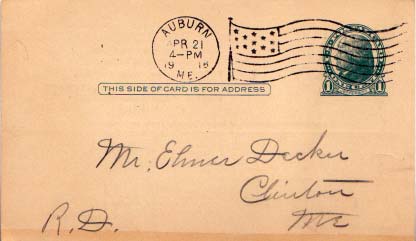 AUBURN
APR 21
4-PM
1916
ME.
THIS SIDE OF CARD IS FOR ADDRESS
1 1
Mr. Elmer Decker
Clinton
Me
R.D.